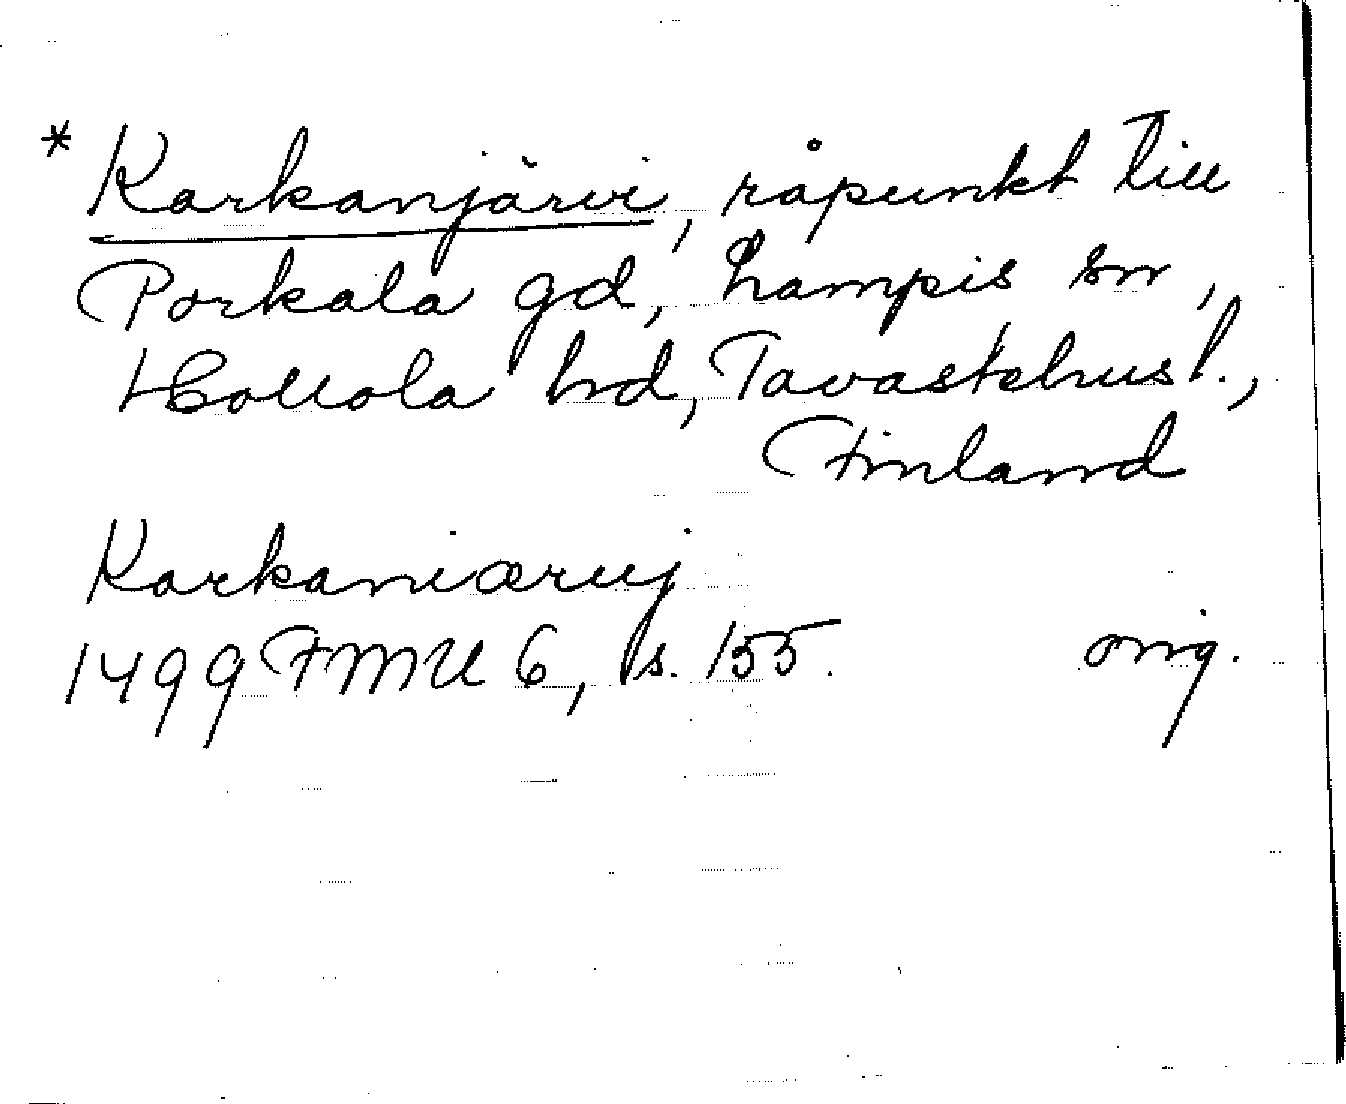 * Karkanjärvi, råpunkt till
Porkala gd, Lampis sn,
Hollola hd, Tavastehus l.,
Finland
Karkaniæruj
1499 FMU 6, s. 155. orig.